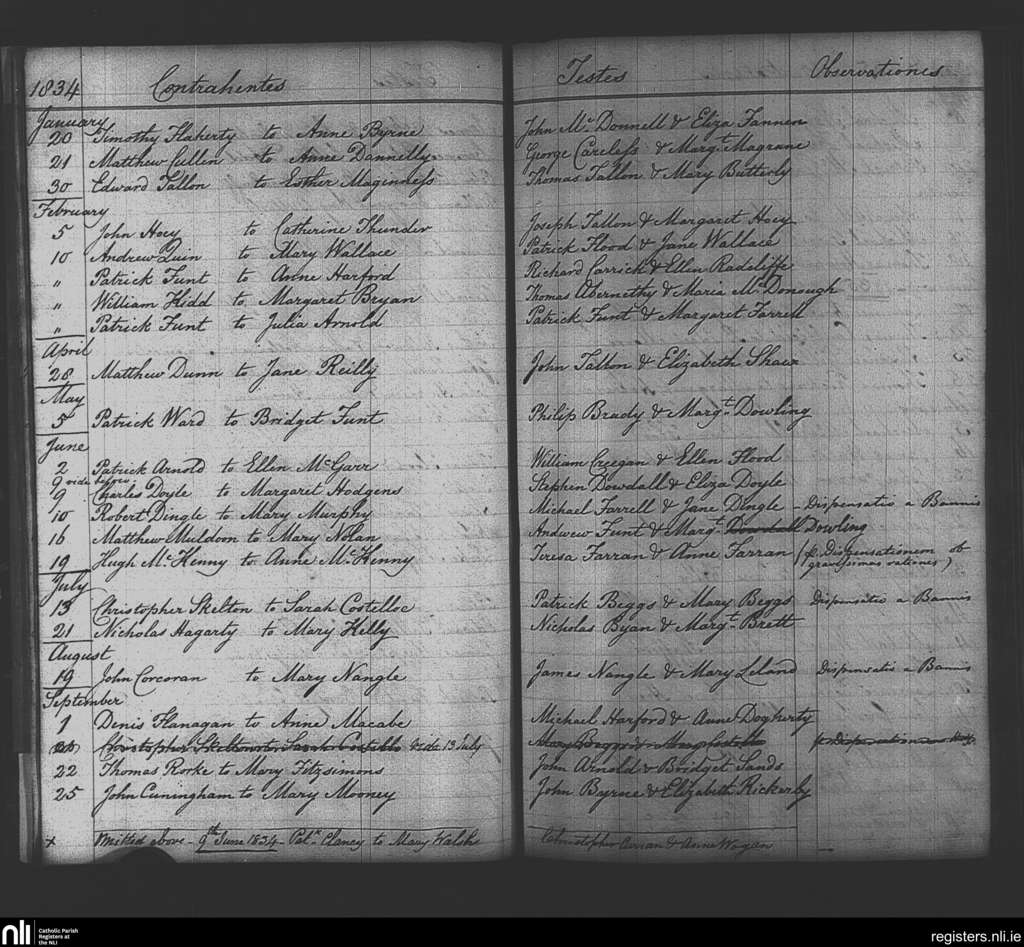 1834 Contrahentes Testes Observationes
January
20 Timothy Flaherty to Anne Byrne John Mc Donnell & Eliza Fannen
21 Matthew Cullen to Anne Dannelly George Careless & Margt. Magrane
30 Edward Tallon to Esther Maginness Thomas Tallon & Mary Butterly
February
5 John Hoey to Catherine Thunder Joseph Tallon & Margaret Hoey
10 Andrew Quin to Mary Wallace Patrick Flood & Jane Wallace
" Patrick Funt to Anne Harford Richard Carrick & Ellen Radcliffe
" William Kidd to Margaret Bryan Thomas Abernethy & Maria Mc Donough
" Patrick Funt to Julia Arnold Patrick Funt & Margaret Farrell
April
28 Matthew Dunn to Jane Reilly John Tallon & Elizabeth Shaw
May
5 Patrick Ward to Bridget Funt Philip Brady & Margt. Dowling
June
2 Patrick Arnold to Ellen Mc Garr William Creegan & Ellen Flood
9 vide
9 Charles Doyle to Margaret Hodgens Stephen Dowdall & Eliza Doyle
10 Robert Dingle to Mary Murphy Michael Farrell & Jane Dingle - Dispensatio a Bannis
16 Matthew Muldoon to Mary Nolan Andwew Funt & Margt. Dowdall Dowling
19 Hugh Mc. Kenny to Anne Mc. Kenny Teresa Farran & Anne Farran (p. Dispensationem ob
gravissimas rationes)
July
13 Christopher Skelton to Sarah Costelloe Patrick Beggs & Mary Beggs Dispensatio a Bannis
21 Nicholas Hagarty to Mary Kelly Nicholas Byan & Margt. Brett
August
19 John Corcoran to Mary Nangle James Nangle & Mary Leland Dispensatio a Bannis
September
1 Denis Flanagan to Anne Macabe Michael Harford & Anne Dogherty
Christopher Skelton to Sarah Costello vide 13 July Mary Beggs &
22 Thomas Rorke to Mary Fitzsimons John Arnold & Bridget Sands
25 John Cuningham to Mary Mooney John Byrne & Elizabeth Rickerby
x Omitted above - 9th June 1834 - Patk. Clancy to Mary Walsh Christopher & Anne Wogan
nli Catholic Parish
Registers at
the NLI
registers.nli.ie